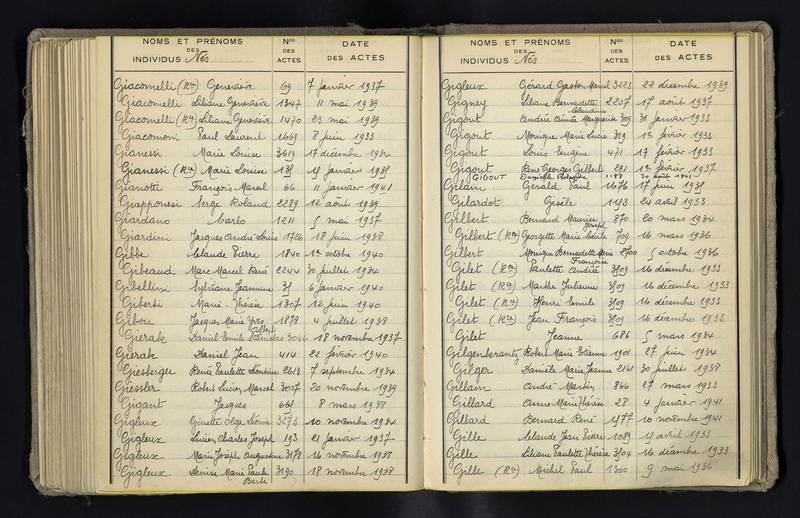 NOMS ET PRÉNOMS DES INDIVIDUS Nés
Nos DES ACTES
DATE DES ACTES
Giacomelli (Rn) Geneviève 69 7 janvier 1937
Giacomelli Liliane Geneviève 1347 11 mai 1939
Giacomelli (Rn) Liliane Geneviève 1470 23 mai 1939
Giacomoni Paul Laurent 1669 8 juin 1933
Gianessi Marie Louise 3619 17 décembre 1934
Gianessi (Rn) Marie Louise 135 janvier 1935
Gianotti François Marcel 66 11 janvier 1941
Giapponesi Serge Roland 2289 12 août 1939
Giardano Carlo 1211 5 mai 1937
Giardini Jacques André Louis 1726 18 juin 1938
Gibbe Claude Pierre 1840 1er octobre 1940
Gibeaud Marc Marcel René 2244 30 juillet 1934
Gibellini Sylviane Jeannine 35 6 janvier 1940
Giberti Marie-Thérèse 1307 12 juin 1940
Gibou Jacques Marie Yves 1878 4 juillet 1938
Gierak Daniel Emile Stanislas Gilbert 3046 18 novembre 1937
Gierak Daniel Jean 414 22 février 1940
Giesberger Renée Paulette Léontine 2613 7 septembre 1934
Giessler Robert Lucien Marcel 3007 20 novembre 1939
Gigant Jacques 665 8 mars 1938
Gigleux Ginette Olga Léonie 3273 10 novembre 1934
Gigleux Lucien Charles Joseph 193 21 janvier 1937
Gigleux Marie Joseph Augustine 3178 16 novembre 1938
Gigleux Denise Marie Paule Barbe 3190 18 novembre 1938
NOMS ET PRÉNOMS DES INDIVIDUS Nés
Nos DES ACTES
DATE DES ACTES
Gigleux Gérard Gaston Marcel 3223 22 décembre 1939
Gigney Liliane Bernadette Claudine 2207 17 août 1937
Gigout Andrée Aimée Marguerite 309 31 janvier 1933
Gigout Monique Marie Lucie 319 1er février 1933
Gigout Louis Eugène 471 17 février 1933
Gigout René Georges Gilbert 291 1er février 1937
GIGOUT Danielle 1188 30 août 1941
Gilain Gérald Paul 1676 17 juin 1935
Gilardot Gisèle 1143 24 avril 1933
Gilbert Bernard Maurice Joseph 870 20 mars 1934
Gilbert (Rn) Georgette Marie Cécile 709 16 mars 1936
Gilbert Monique Bernadette Marie Françoise 2700 5 octobre 1936
Gilet (Rn) Paulette Andrée 3509 16 décembre 1933
Gilet (Rn) Marthe Julienne 3509 16 décembre 1933
Gilet (Rn) Henri Emile 3509 16 décembre 1933
Gilet (Rn) Jean François 3509 16 décembre 1933
Gilet Jeanne 686 5 mars 1934
Gilgenkrantz Robert Marie Etienne 1901 27 juin 1934
Gilger Danièle Marie Jeanne 2141 30 juillet 1938
Gillain André Martin 866 27 mars 1933
Gillard Anne Marie Thérèse 28 4 janvier 1941
Gillard Bernard René 1577 10 novembre 1941
Gille Claude Jean Pierre 1089 avril 1933
Gille Liliane Paulette Thérèse 3504 16 décembre 1933
Gille (Rn) Michel Paul 1300 9 mai 1936